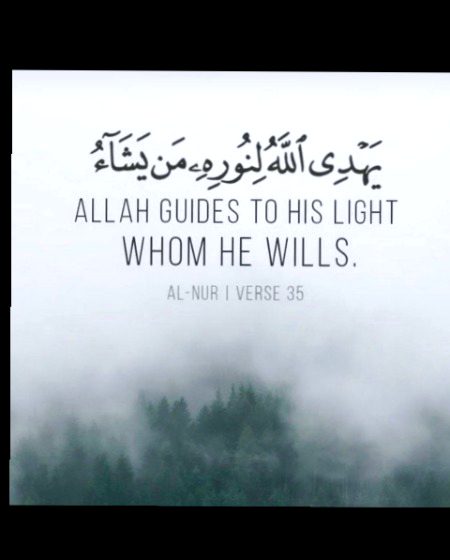 يَهْدِى ٱللَّهُ لِنُورِهِۦ مَن يَشَآءُ
ALLAH GUIDES TO HIS LIGHT
WHOM HE WILLS.
AL-NUR | VERSE 35